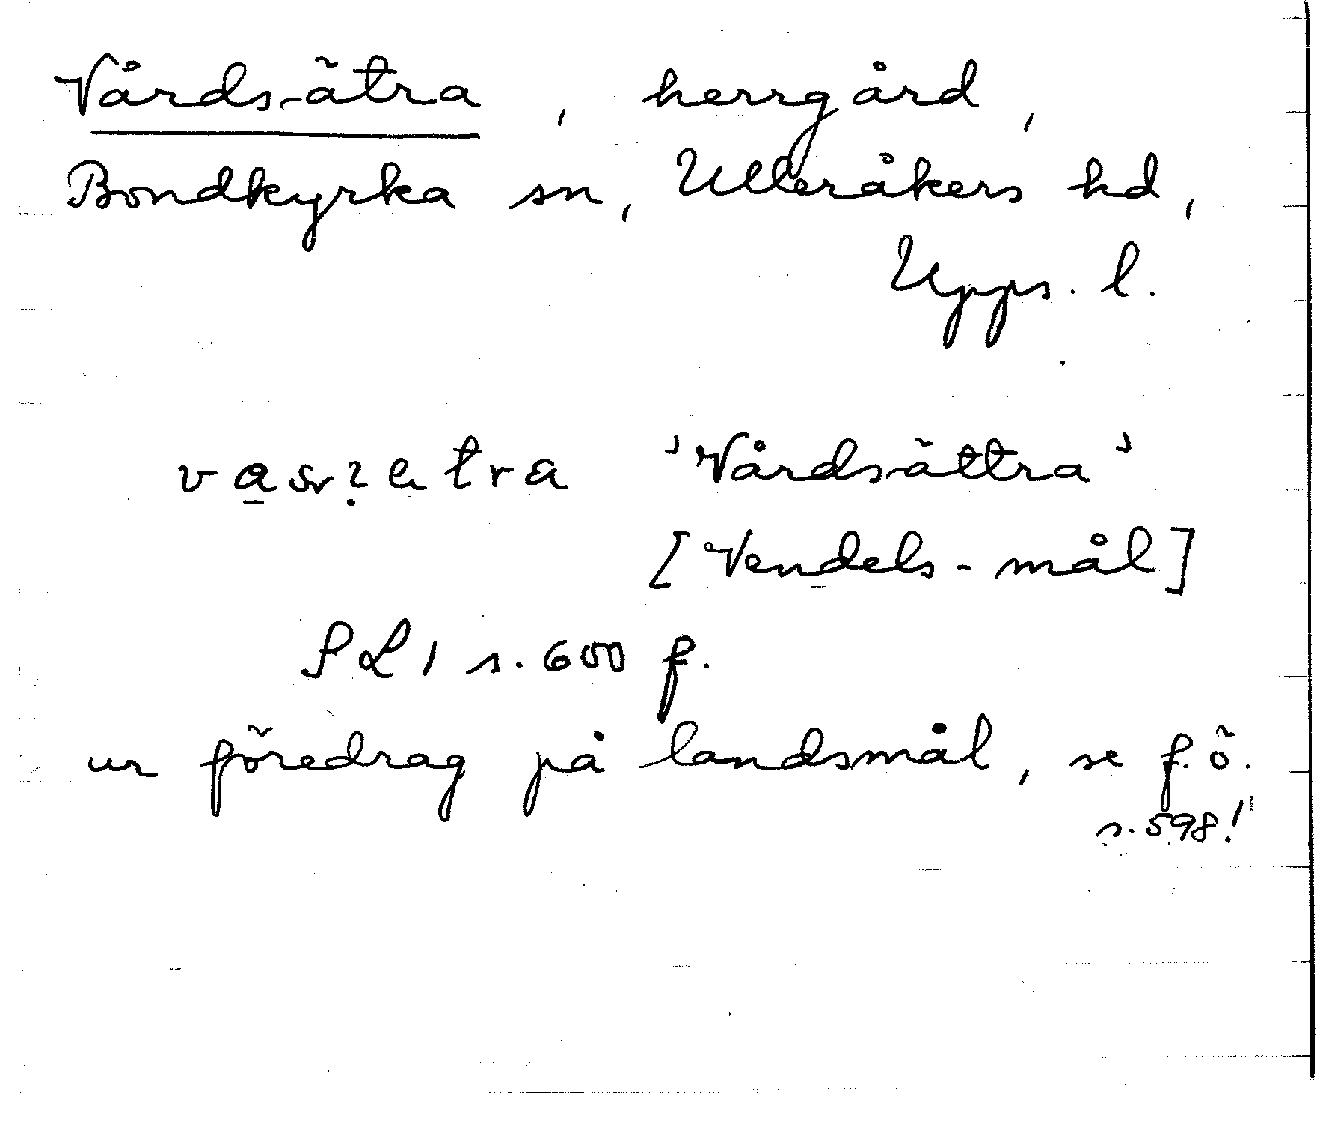 Vårdsätra, herrgård,
Bondkyrka sn, Ulleråkers hd,
Upps. l.
'Vårdsättra'
[Vendels-mål]
SL 1 s. 600 f.
ur föredrag på landsmål, se f.ö.
s. 598!